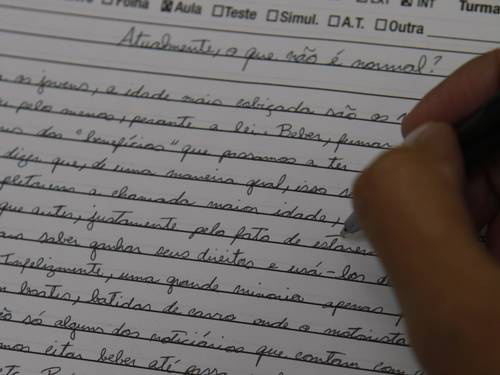 Folha ☒ Aula ☐ Teste ☐ Simul. ☐ A.T. ☐ Outra
EXT ☒ INT
Turma
Atualmente, o que não é normal?
os jovens, a idade mais cobiçada são os
pelo menos, perante a lei. Beber, fumar
dos "benefícios" que passamos a ter
dizer que, de uma maneira geral, isso
a chamada maior idade,
que antes, justamente pelo fato de
saber ganhar seus direitos e usá-los
Infelizmente, uma grande minoria apenas
boates, batidas de carro onde o motorista
só alguns dos noticiários que contam com
citar beber até